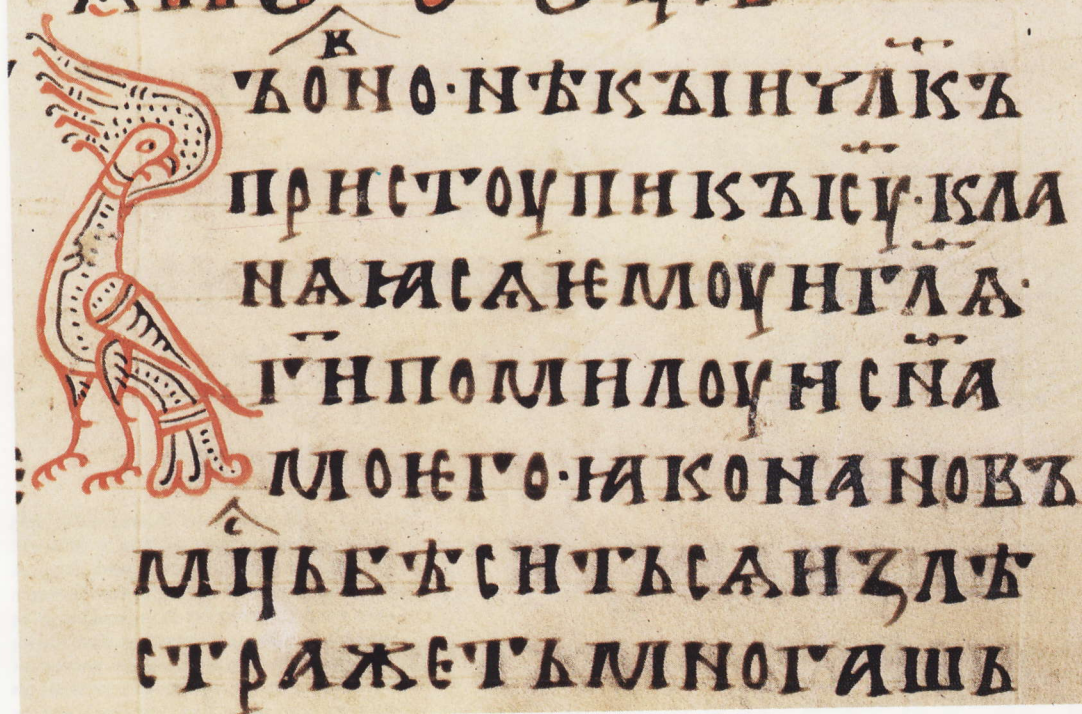 Ъ ОНО· НѢКЪІИ Ч҃ЛКЪ
ПРИСТОУПИ КЪ І҃СУ· КЛА
НѦѤѦСѦ ѤМОУ И Г҃ЛѦ·
Г҃И ПОМИЛОУИ С҃НА
МОѤГО· ꙖКО НА НОВЪ
М҃ЦЬ БѢСИТЬСѦ И ЗЛѢ
СТРАЖЕТЬ МНОГАШЬ